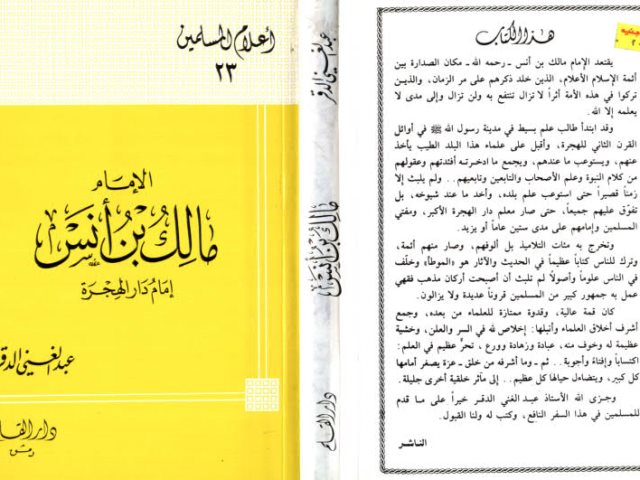 أعلام المسلمين
٢٣
الإمام
مالك بن أنس
إمام دار الهجرة
عبد الغني الدقر
دار القلم
دمشق
عبد الغني الدقر
مالك بن أنس
دار القلم
هذا الكتاب
يقتعد الإمام مالك بن أنس ـ رحمه الله ـ مكان الصدارة بين
أئمة الإسلام الأعلام، الذين خلد ذكرهم على مر الزمان، والذين
تركوا في هذه الأمة أثراً لا تزال تنتفع به ولن تزال وإلى مدى لا
يعلمه إلا الله.
وقد ابتدأ طالب علم بسيط في مدينة رسول الله ﷺ في أوائل
القرن الثاني للهجرة، وأقبل على علماء هذا البلد الطيب يأخذ
عنهم، ويستوعب ما عندهم، ويجمع ما ادخرته أفئدتهم وعقولهم
من كلام النبوة وعلم الأصحاب والتابعين وتابعيهم.. ولم يلبث إلا
زمناً قصيراً حتى استوعب علم بلده، وأخذ ما عند شيوخه، بل
تفوّق عليهم جميعاً، حتى صار معلم دار الهجرة الأكبر، ومفتي
المسلمين وإمامهم على مدى ستين عاماً أو يزيد.
وتخرج به مئات التلاميذ بل ألوفهم، وصار منهم أئمة،
وترك للناس كتاباً عظيماً في الحديث والآثار هو «الموطأ» وخلّف
في الناس علوماً وأصولاً لم تلبث أن أصبحت أركان مذهب فقهي
عمل به جمهور كبير من المسلمين قروناً عديدة ولا يزالون.
كان قمة عالية، وقدوة ممتازة للعلماء من بعده، وجمع
أشرف أخلاق العلماء وأنبلها: إخلاص لله في السر والعلن، وخشية
عظيمة له وخوف منه، عبادة وزهادة وورع، تحرٍّ عظيم في العلم:
اكتساباً وإفتاءً وأجوبة.. ثم ـ وما أشرفه من خلق ـ عزة يصغر أمامها
كل كبير، ويتضاءل حيالها كل عظيم.. إلى مآثر خلقية أخرى جليلة.
وجزى الله الأستاذ عبد الغني الدقر خيراً على ما قدم
للمسلمين في هذا السفر النافع، وكتب له ولنا القبول.
الناشر